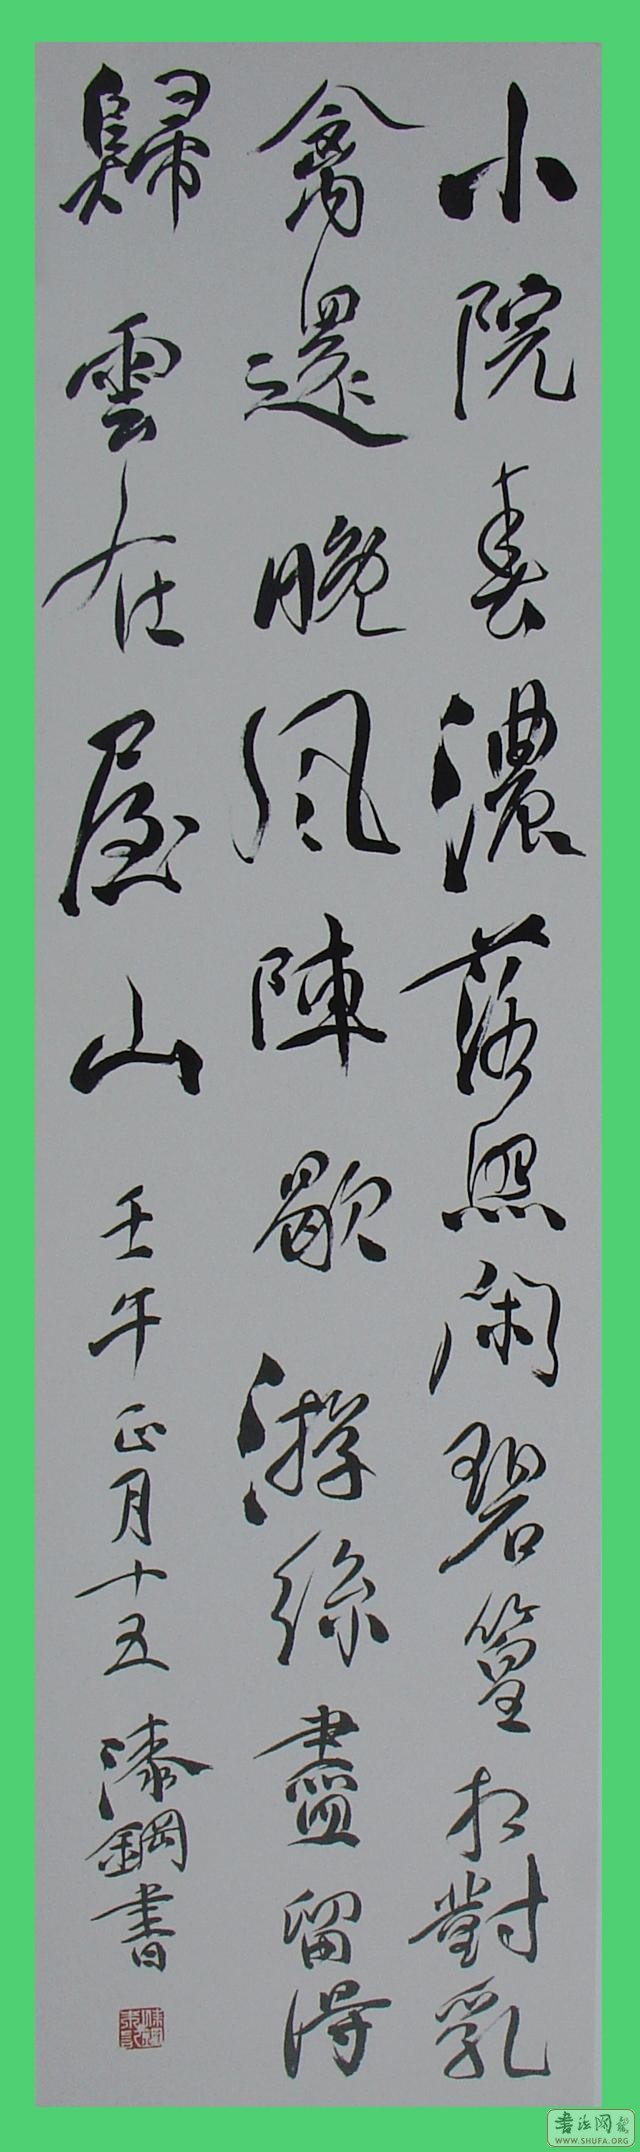 小院春濃落照閑碧篁相對乳
禽還晚風陣歇游絲盡留得
歸雲在屋山
壬午正月十五漆鋼書
書法网
WWW.SHUFA.ORG